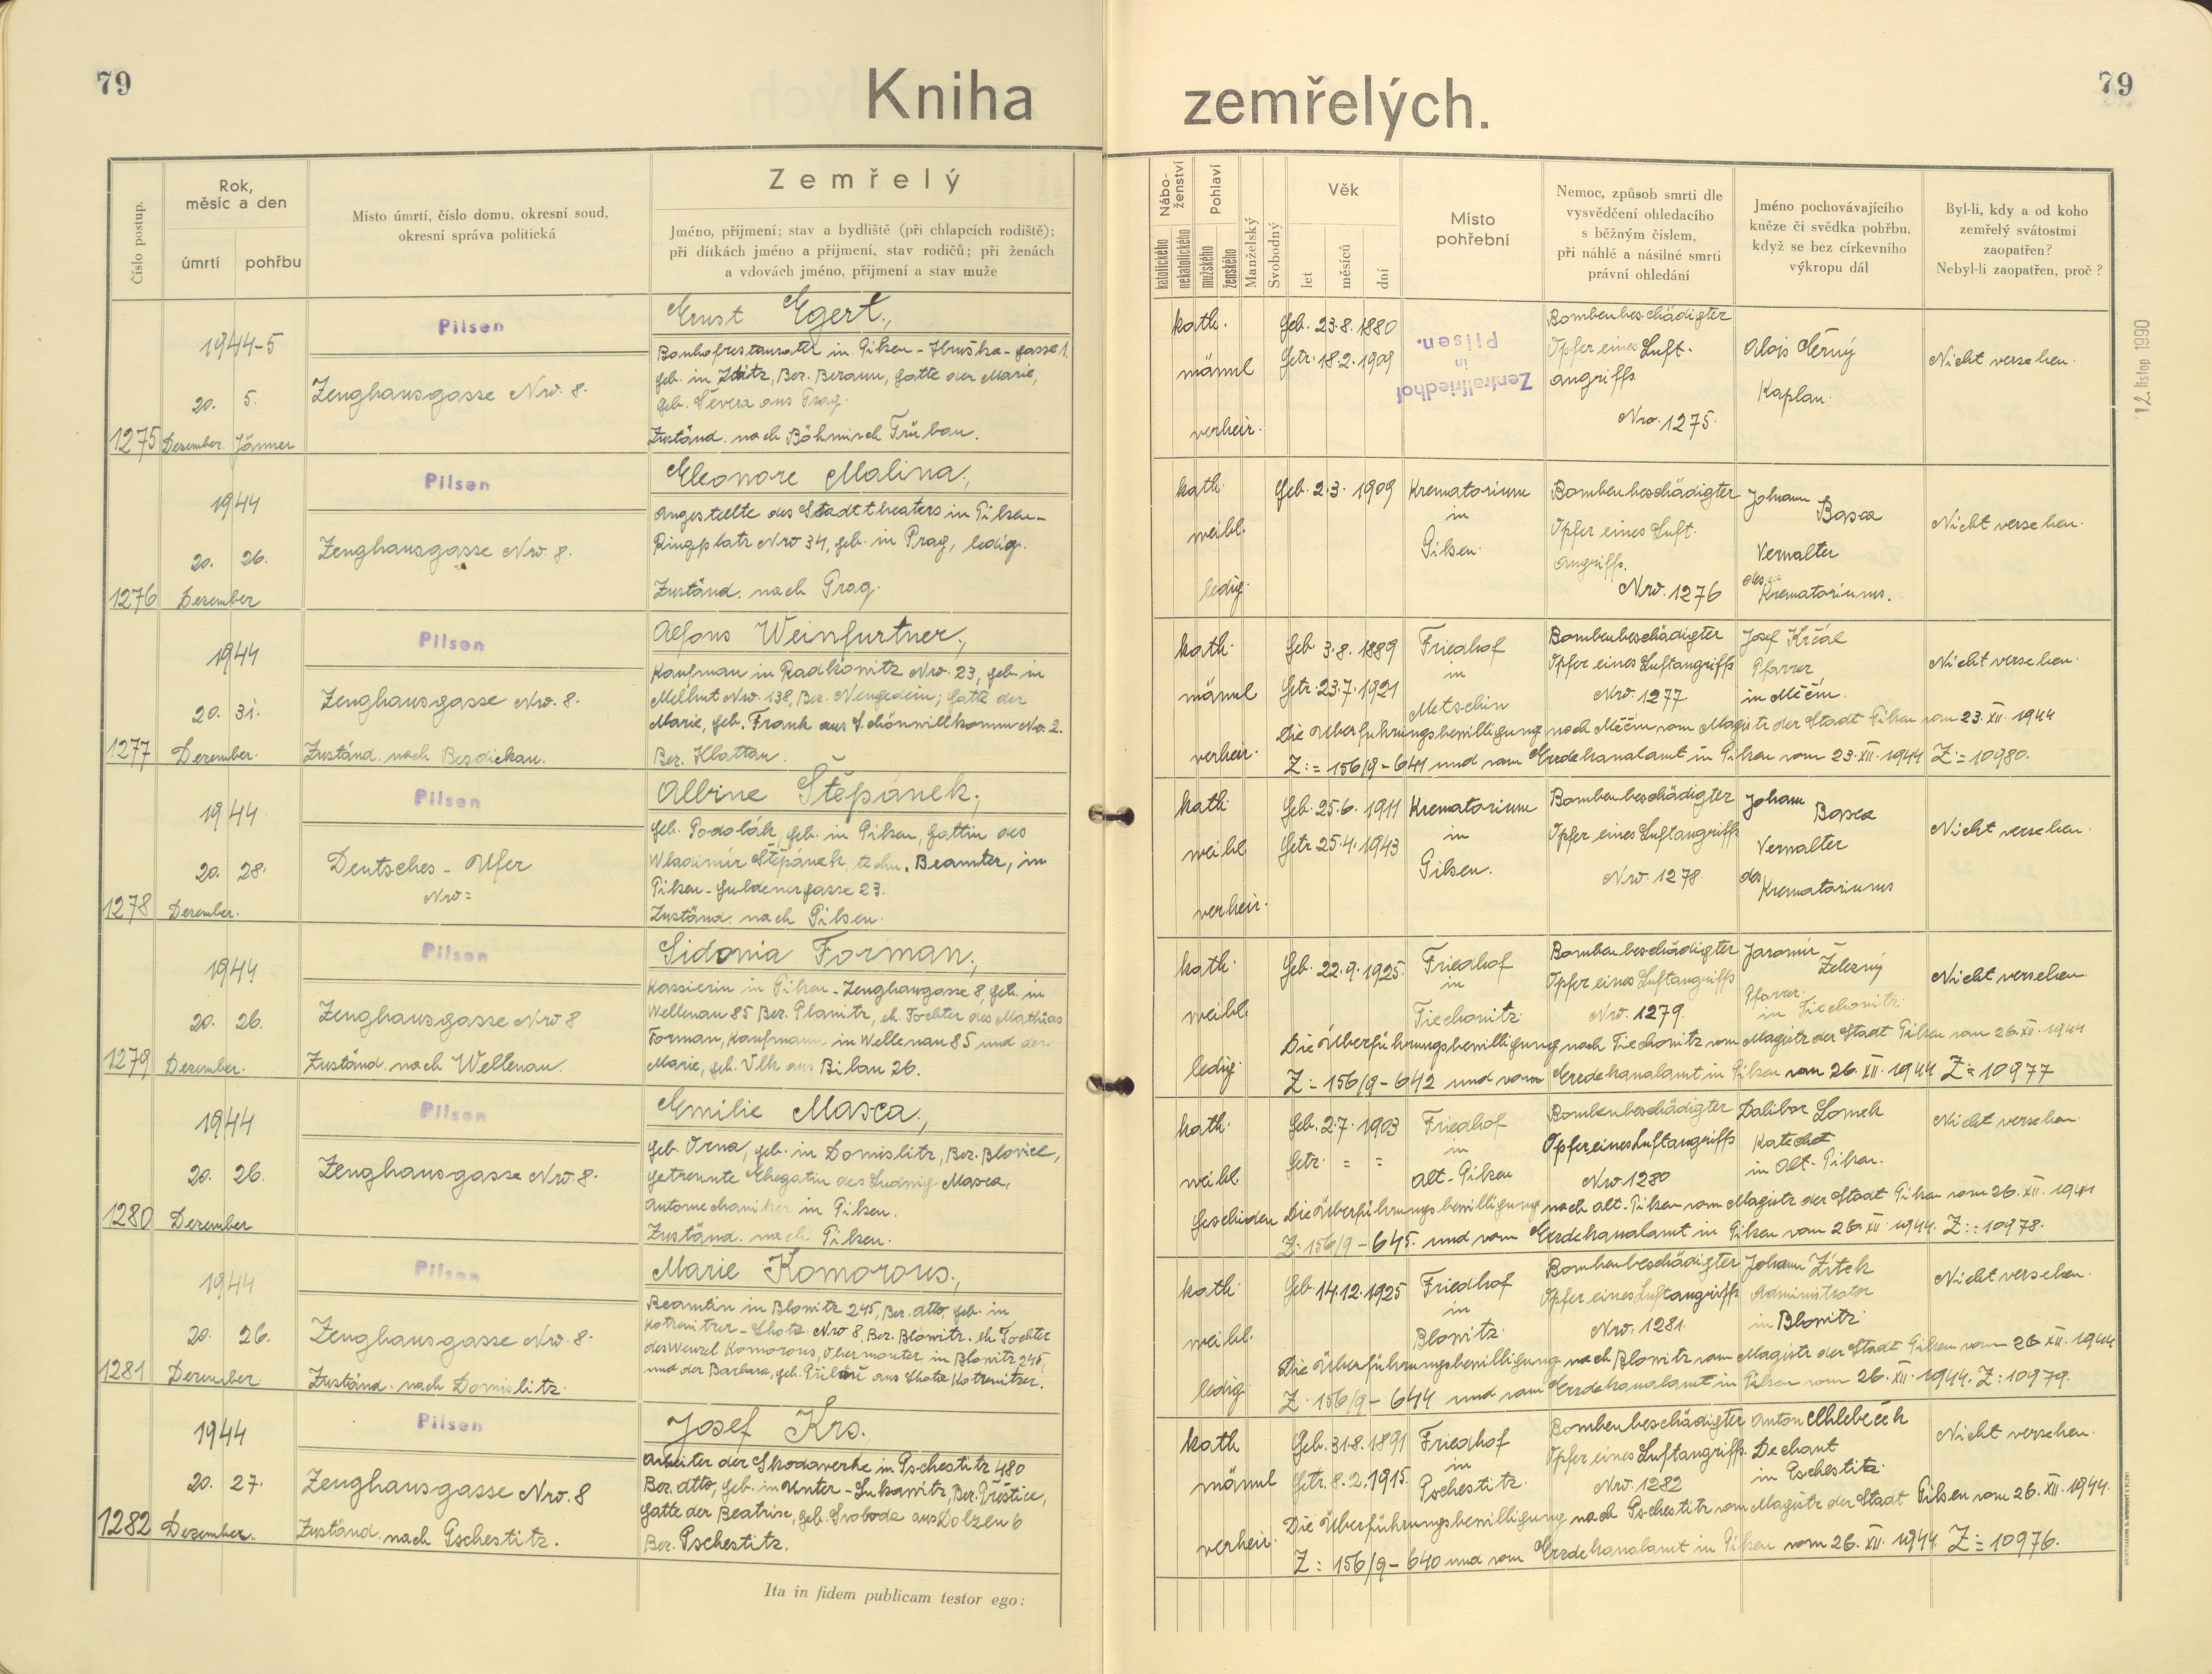 79
Kniha zemřelých.
79
Číslo postup.
Rok, měsíc a den
úmrtí
pohřbu
Místo úmrtí, číslo domu, okresní soud, okresní správa politická
Zemřelý
Jméno, příjmení; stav a bydliště (při chlapcích rodiště);
při dítkách jméno a příjmení, stav rodičů; při ženách
a vdovách jméno, příjmení a stav muže
Nábo-ženství
katolického
nekatolického
Pohlaví
mužského
ženského
Manželský
Svobodný
Věk
let
měsíců
dní
Místo pohřební
Nemoc, způsob smrti dle
vysvědčení ohledacího
s běžným číslem,
při náhlé a násilné smrti
právní ohledání
Jméno pochovávajícího
kněze či svědka pohřbu,
když se bez církevního
výkropu dál
Byl-li, kdy a od koho
zemřelý svátostmi
zaopatřen?
Nebyl-li zaopatřen, proč?
12. listop 1990
1275
1944-5
20. 5.
Dezember Jänner
Pilsen
Zeughausgasse Nro. 8.
Ernst Egert,
Bahnhofrestaurater in Pilsen - Hruška-gasse 1.
geb. in Zditz, Bez. Beraun, Gatte der Marie,
geb. Severa aus Prag.
Zuständ. nach Böhmisch Trübau.
kath.
männl
verheir.
Geb. 23.8.1880
Getr. 18.2.1909
Zentralfriedhof
in
Pilsen.
Bombenbeschädigter
Opfer eines Luft-
angriffs
Nro. 1275.
Alois Černý
Kaplan.
Nicht versehen.
1276
1944
20. 26.
Dezember
Pilsen
Zeughausgasse Nro. 8.
Eleonore Malina,
Angestellte des Stadttheaters in Pilsen-
Ringplatz Nro 34, geb. in Prag, ledig.
Zuständ. nach Prag.
kath.
weibl.
ledig.
Geb. 2.3. 1909
Krematorium
in
Pilsen.
Bombenbeschädigter
Opfer eines Luft-
angriffs.
Nro. 1276
Johann
Basca
Verwalter
des Krematoriums.
Nicht versehen.
1277
1944
20. 31.
Dezember.
Pilsen
Zeughausgasse Nro. 8.
Zuständ. nach Besdiekau.
Alfons Weinfurtner,
Kaufman in Radkowitz Nro. 23, geb. in
Mellhut Nro. 138, Bez. Neugedein; Gatte der
Marie, geb. Frank aus Schönwillkomm Nro. 2.
Bez. Klattau.
kath.
männl
verheir.
Geb. 3.8. 1889
Getr. 23.7.1921
Friedhof
in
Metschin
Bombenbeschädigter
Opfer eines Luftangriffs
Nro. 1277
Josef Krčál
Pfarrer
in Měčín.
Nicht versehen.
Die Überführungsbewilligung nach Měčín vom Magistr der Stadt Pilsen vom 23. XII. 1944
Z: = 156/9 - 641 und vom Erzdekanalamt in Pilsen vom 23. XII. 1944 Z: = 10980.
1278
1944
20. 28.
Dezember.
Pilsen
Deutsches - Ufer
Nro =
Albine Štěpánek,
geb. Podolák, geb. in Pilsen, Gattin des
Wladimir Štěpánek, techn. Beamter, in
Pilsen - Guldenergasse 23.
Zuständ. nach Pilsen.
kath.
weibl
verheir.
Geb. 25.6. 1911
Getr. 25.4. 1943
Krematorium
in
Pilsen.
Bombenbeschädigter
Opfer eines Luftangriffs
Nro. 1278
Johann
Basca
Verwalter
des Krematoriums
Nicht versehen.
1279
1944
20. 26.
Dezember.
Pilsen
Zeughausgasse Nro 8
Zuständ. nach Wellenau.
Sidonia Forman,
Kassierin in Pilsen - Zeughausgasse 8, geb. in
Wellenau 85 Bez. Planitz, eh. Tochter des Mathias
Forman, Kaufmann in Wellenau 85 und der
Marie, geb. Vlk aus Bilau 26.
kath.
weibl.
ledig.
Geb. 22.9.1925
Friedhof
in
Tiechowitz.
Bombenbeschädigter
Opfer eines Luftangriffs
Nro. 1279.
Jaromír
Železný
Pfarrer
in Tiechowitz.
Nicht versehen
Die Überführungsbewilligung nach Tiechowitz vom Magistr der Stadt Pilsen vom 26. XII. 1944
Z: = 156/9 - 642 und vom Erzdekanalamt in Pilsen vom 26. XII. 1944 Z = 10977
1280
1944
20. 26.
Dezember
Pilsen
Zeughausgasse Nro. 8.
Emilie Masca,
geb. Orna, geb. in Domislitz, Bez. Blovice,
getrennte Ehegatin des Ludwig Masca,
Automechaniker in Pilsen.
Zuständ. nach Pilsen.
kath.
weibl.
geschieden
Geb. 2.7. 1903
Getr. = =
Friedhof
in
Alt-Pilsen
Bombenbeschädigter
Opfer eines Luftangriffs
Nro 1280
Dalibor Lomek
Katechet
in Alt-Pilsen.
Nicht versehen
Die Überführungsbewilligung nach Alt-Pilsen vom Magistr der Stadt Pilsen vom 26. XII. 1944
Z: 156/9 - 645. und vom Erzdekanalamt in Pilsen vom 26. XII. 1944. Z: = 10978.
1281
1944
20. 26.
Dezember.
Pilsen
Zeughausgasse Nro. 8.
Zuständ. nach Domislitz.
Marie Komorous,
Beamtin in Blowitz 245, Bez. dtto, geb. in
Kotrenitzer - Lhota Nro 8, Bez. Blowitz. eh. Tochter
des Wenzl Komorous, Obermonter in Blowitz 245,
und der Barbara, geb. aus Lhota Kotrenitzer.
kath.
weibl.
ledig.
Geb. 14.12.1925
Friedhof
in
Blowitz.
Bombenbeschädigter
Opfer eines Luftangriffs
Nro. 1281.
Johann Zítek
Administrator
in Blowitz.
Nicht versehen.
Die Überführungsbewilligung nach Blowitz vom Magistr der Stadt Pilsen vom 26 XII. 1944
Z. 156/9 - 644 und vom Erzdekanalamt in Pilsen vom 26. XII. 1944. Z: 10979.
1282
1944
20. 27.
Dezember.
Pilsen
Zeughausgasse Nro. 8
Zuständ. nach Pschestitz.
Josef Krs.,
Arbeiter der Skodawerke in Pschestitz 480
Bez. dtto, geb. in Unter-Lukawitz, Bez. Přeštice,
Gatte der Beatrise, geb. Svoboda aus Dolzen 6
Bez. Pschestitz.
kath
männl
verheir.
Geb. 31.8.1891
Getr. 8.2.1915.
Friedhof
in
Pschestitz.
Bombenbeschädigter
Opfer eines Luftangriffs.
Nro. 1282
Anton Chlebeček
Dechant
in Pschestitz.
Nicht versehen.
Die Überführungsbewilligung nach Pschestitz vom Magistr der Stadt Pilsen vom 26. XII. 1944.
Z: 156/9 - 640 und vom Erzdekanalamt in Pilsen vom 26. XII. 1944. Z: = 10976.
Ita in fidem publicam testor ego: